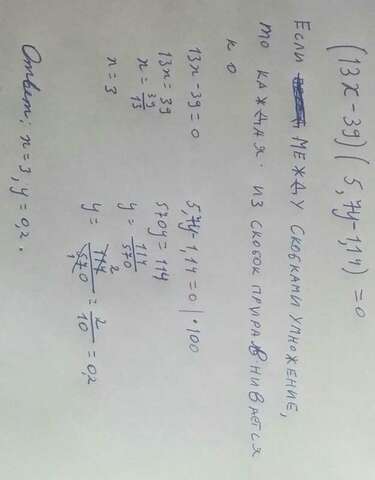 (13x - 39)(5,7y-1,14) = 0
Если между скобками умножение,
то каждая из скобок приравнивается
к 0
13x - 39 = 0
13x = 39
x = 39/13
x = 3
5,7y-1,14 = 0 | ·100
570y = 114
y = 114/570
y = 114/570 = 2/10 = 0,2
Ответ: x = 3, y = 0,2.